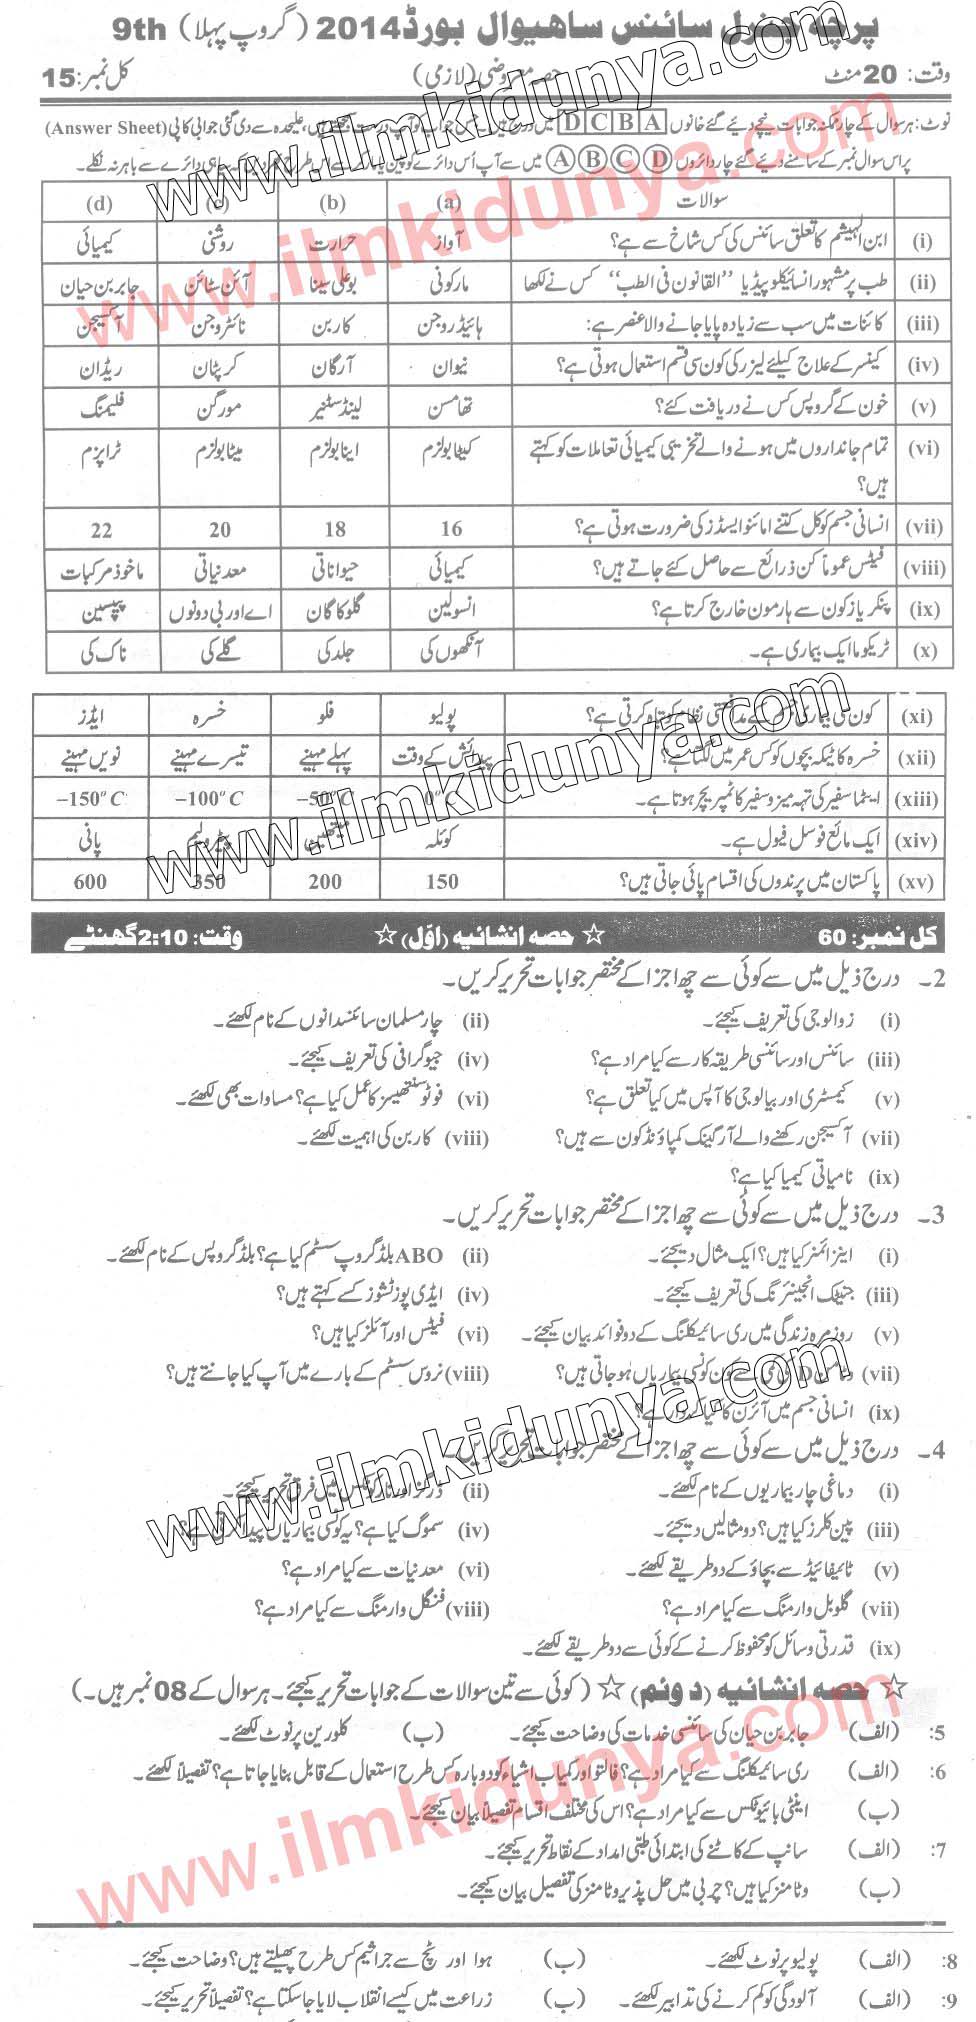 پرچہ جنرل سائنس ساھیوال بورڈ 2014 (گروپ پہلا) 9th
وقت: 20 منٹ حصہ معروضی (لازمی) کل نمبر: 15
نوٹ: ہر سوال کے چار ممکنہ جوابات نیچے دئیے گئے خانوں A B C D میں درج ہیں۔ جس جواب کو آپ درست سمجھتے ہیں، علیحدہ سے دی گئی جوابی کاپی (Answer Sheet)
پر اس سوال نمبر کے سامنے دئیے گئے چار دائروں A B C D میں سے آپ اُس دائرے کو پین یا مارکر سے اس طرح بھر دیں۔ سیاہی دائرے سے باہر نہ نکلے۔
سوالات (a) (b) (c) (d)
(i) ابن الہیشم کا تعلق سائنس کی کس شاخ سے ہے؟ آواز حرارت روشنی کیمیائی
(ii) طب پر مشہور انسائیکلوپیڈیا "القانون فی الطب" کس نے لکھا مارکونی بوعلی سینا آئن سٹائن جابر بن حیان
(iii) کائنات میں سب سے زیادہ پایا جانے والا عنصر ہے: ہائیڈروجن کاربن نائٹروجن آکسیجن
(iv) کینسر کے علاج کیلئے لیزر کی کون سی قسم استعمال ہوتی ہے؟ نیوان آرگان کرپٹان ریڈان
(v) خون کے گروپس کس نے دریافت کئے؟ تھامسن لینڈ سٹنیر مورگن فلیمنگ
(vi) تمام جانداروں میں ہونے والے تخریبی کیمیائی تعاملات کو کہتے ہیں؟ کیٹابولزم اینابولزم میٹابولزم ٹراپزم
(vii) انسانی جسم کو کل کتنے امائنو ایسڈز کی ضرورت ہوتی ہے؟ 16 18 20 22
(viii) فیٹس عموماً کن ذرائع سے حاصل کئے جاتے ہیں؟ کیمیائی حیواناتی معدنیاتی ماخوذ مرکبات
(ix) پنکریاز کون سے ہارمون خارج کرتا ہے؟ انسولین گلوکاگان اے اور بی دونوں پیپسین
(x) ٹریکوما ایک بیماری ہے۔ آنکھوں کی جلد کی گلے کی ناک کی
(xi) کون سی بیماری کے مدافعتی نظام کو تباہ کرتی ہے؟ پولیو فلو خسرہ ایڈز
(xii) خسرہ کا ٹیکہ بچوں کو کس عمر میں لگتا ہے؟ پیدائش کے وقت پہلے مہینے تیسرے مہینے نویں مہینے
(xiii) ایٹماسفیر کی تہہ میزوسفیر کا ٹمپریچر ہوتا ہے۔ 0°C –50°C –100°C –150°C
(xiv) ایک مائع فوسل فیول ہے۔ کوئلہ میتھین پیٹرولیم پانی
(xv) پاکستان میں پرندوں کی اقسام پائی جاتی ہیں؟ 150 200 350 600
کل نمبر: 60 ☆ حصہ انشائیہ (اوّل) ☆ وقت: 2:10 گھنٹے
2۔ درج ذیل میں سے کوئی سے چھ اجزا کے مختصر جوابات تحریر کریں۔
(i) زوالوجی کی تعریف کیجئے۔ (ii) چار مسلمان سائنسدانوں کے نام لکھئے۔
(iii) سائنس اور سائنسی طریقہ کار سے کیا مراد ہے؟ (iv) جیوگرافی کی تعریف کیجئے۔
(v) کیمسٹری اور بیالوجی کا آپس میں کیا تعلق ہے؟ (vi) فوٹوسنتھیسز کا عمل کیا ہے؟ مساوات بھی لکھئے۔
(vii) آکسیجن رکھنے والے آرگینک کمپاؤنڈ کون سے ہیں؟ (viii) کاربن کی اہمیت لکھئے۔
(ix) نامیاتی کیمیا کیا ہے؟
3۔ درج ذیل میں سے کوئی سے چھ اجزا کے مختصر جوابات تحریر کریں۔
(i) اینزائمز کیا ہیں؟ ایک مثال دیجئے۔ (ii) ABO بلڈ گروپ سسٹم کیا ہے؟ بلڈ گروپس کے نام لکھئے۔
(iii) جنیٹک انجینئرنگ کی تعریف کیجئے۔ (iv) ایڈی پوز ٹشوز کسے کہتے ہیں؟
(v) روزمرہ زندگی میں ری سائیکلنگ کے دو فوائد بیان کیجئے۔ (vi) فیٹس اور آئلز کیا ہیں؟
(vii) وٹامن D کی کمی سے کون کونسی بیماریاں ہو جاتی ہیں؟ (viii) نروس سسٹم کے بارے میں آپ کیا جانتے ہیں؟
(ix) انسانی جسم میں آئرن کا کیا کردار ہے؟
4۔ درج ذیل میں سے کوئی سے چھ اجزا کے مختصر جوابات تحریر کریں۔
(i) دماغی چار بیماریوں کے نام لکھئے۔ (ii) ڈرگز اور نارکوٹکس میں فرق تحریر کیجئے۔
(iii) پین کلرز کیا ہیں؟ دو مثالیں دیجئے۔ (iv) سموگ کیا ہے؟ یہ کونسی بیماریاں پیدا کرتی ہے؟
(v) ٹائیفائیڈ سے بچاؤ کے دو طریقے لکھئے۔ (vi) معدنیات سے کیا مراد ہے؟
(vii) گلوبل وارمنگ سے کیا مراد ہے؟ (viii) فنگل وارمنگ سے کیا مراد ہے؟
(ix) قدرتی وسائل کو محفوظ کرنے کے کوئی سے دو طریقے لکھئے۔
☆ حصہ انشائیہ (دوئم) ☆ (کوئی سے تین سوالات کے جوابات تحریر کیجئے۔ ہر سوال کے 08 نمبر ہیں۔)
5: (الف) جابر بن حیان کی سائنسی خدمات کی وضاحت کیجئے۔ (ب) کلورین پر نوٹ لکھئے۔
6: (الف) ری سائیکلنگ سے کیا مراد ہے؟ فالتو اور کمیاب اشیاء کو دوبارہ کس طرح استعمال کے قابل بنایا جاتا ہے؟ تفصیلاً لکھئے۔
(ب) اینٹی بائیوٹکس سے کیا مراد ہے؟ اس کی مختلف اقسام تفصیلاً بیان کیجئے۔
7: (الف) سانپ کے کاٹنے کی ابتدائی طبی امداد کے نقاط تحریر کیجئے۔
(ب) وٹامنز کیا ہیں؟ چربی میں حل پذیر وٹامنز کی تفصیل بیان کیجئے۔
8: (الف) پولیو پر نوٹ لکھئے۔ (ب) ہوا اور ٹچ سے جراثیم کس طرح پھیلتے ہیں؟ وضاحت کیجئے۔
9: (الف) آلودگی کو کم کرنے کی تدابیر لکھئے۔ (ب) زراعت میں کیسے انقلاب لایا جا سکتا ہے؟ تفصیلاً تحریر کیجئے۔
www.ilmkidunya.com
www.ilmkidunya.com
www.ilmkidunya.com
www.ilmkidunya.com
www.ilmkidunya.com